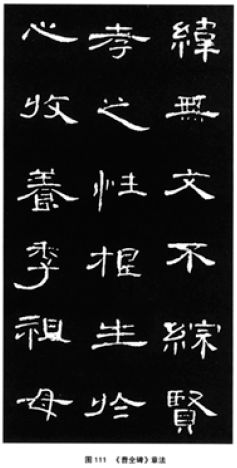 緯無文不綜賢
孝之性根生於
心收養季祖母
图 111 《曹全碑》章法